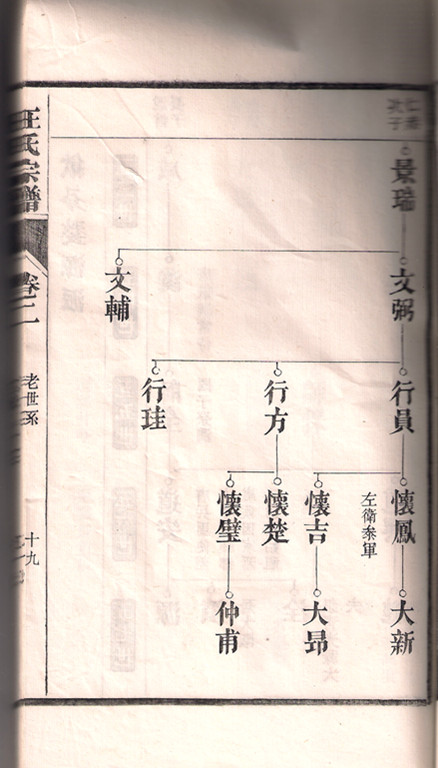 景瑞
文弼
文輔
行員
行方
行珪
懷鳳
左衛參軍
懷吉
懷楚
懷璧
大新
大昂
仲甫
汪氏宗譜
卷二
老世系
十九